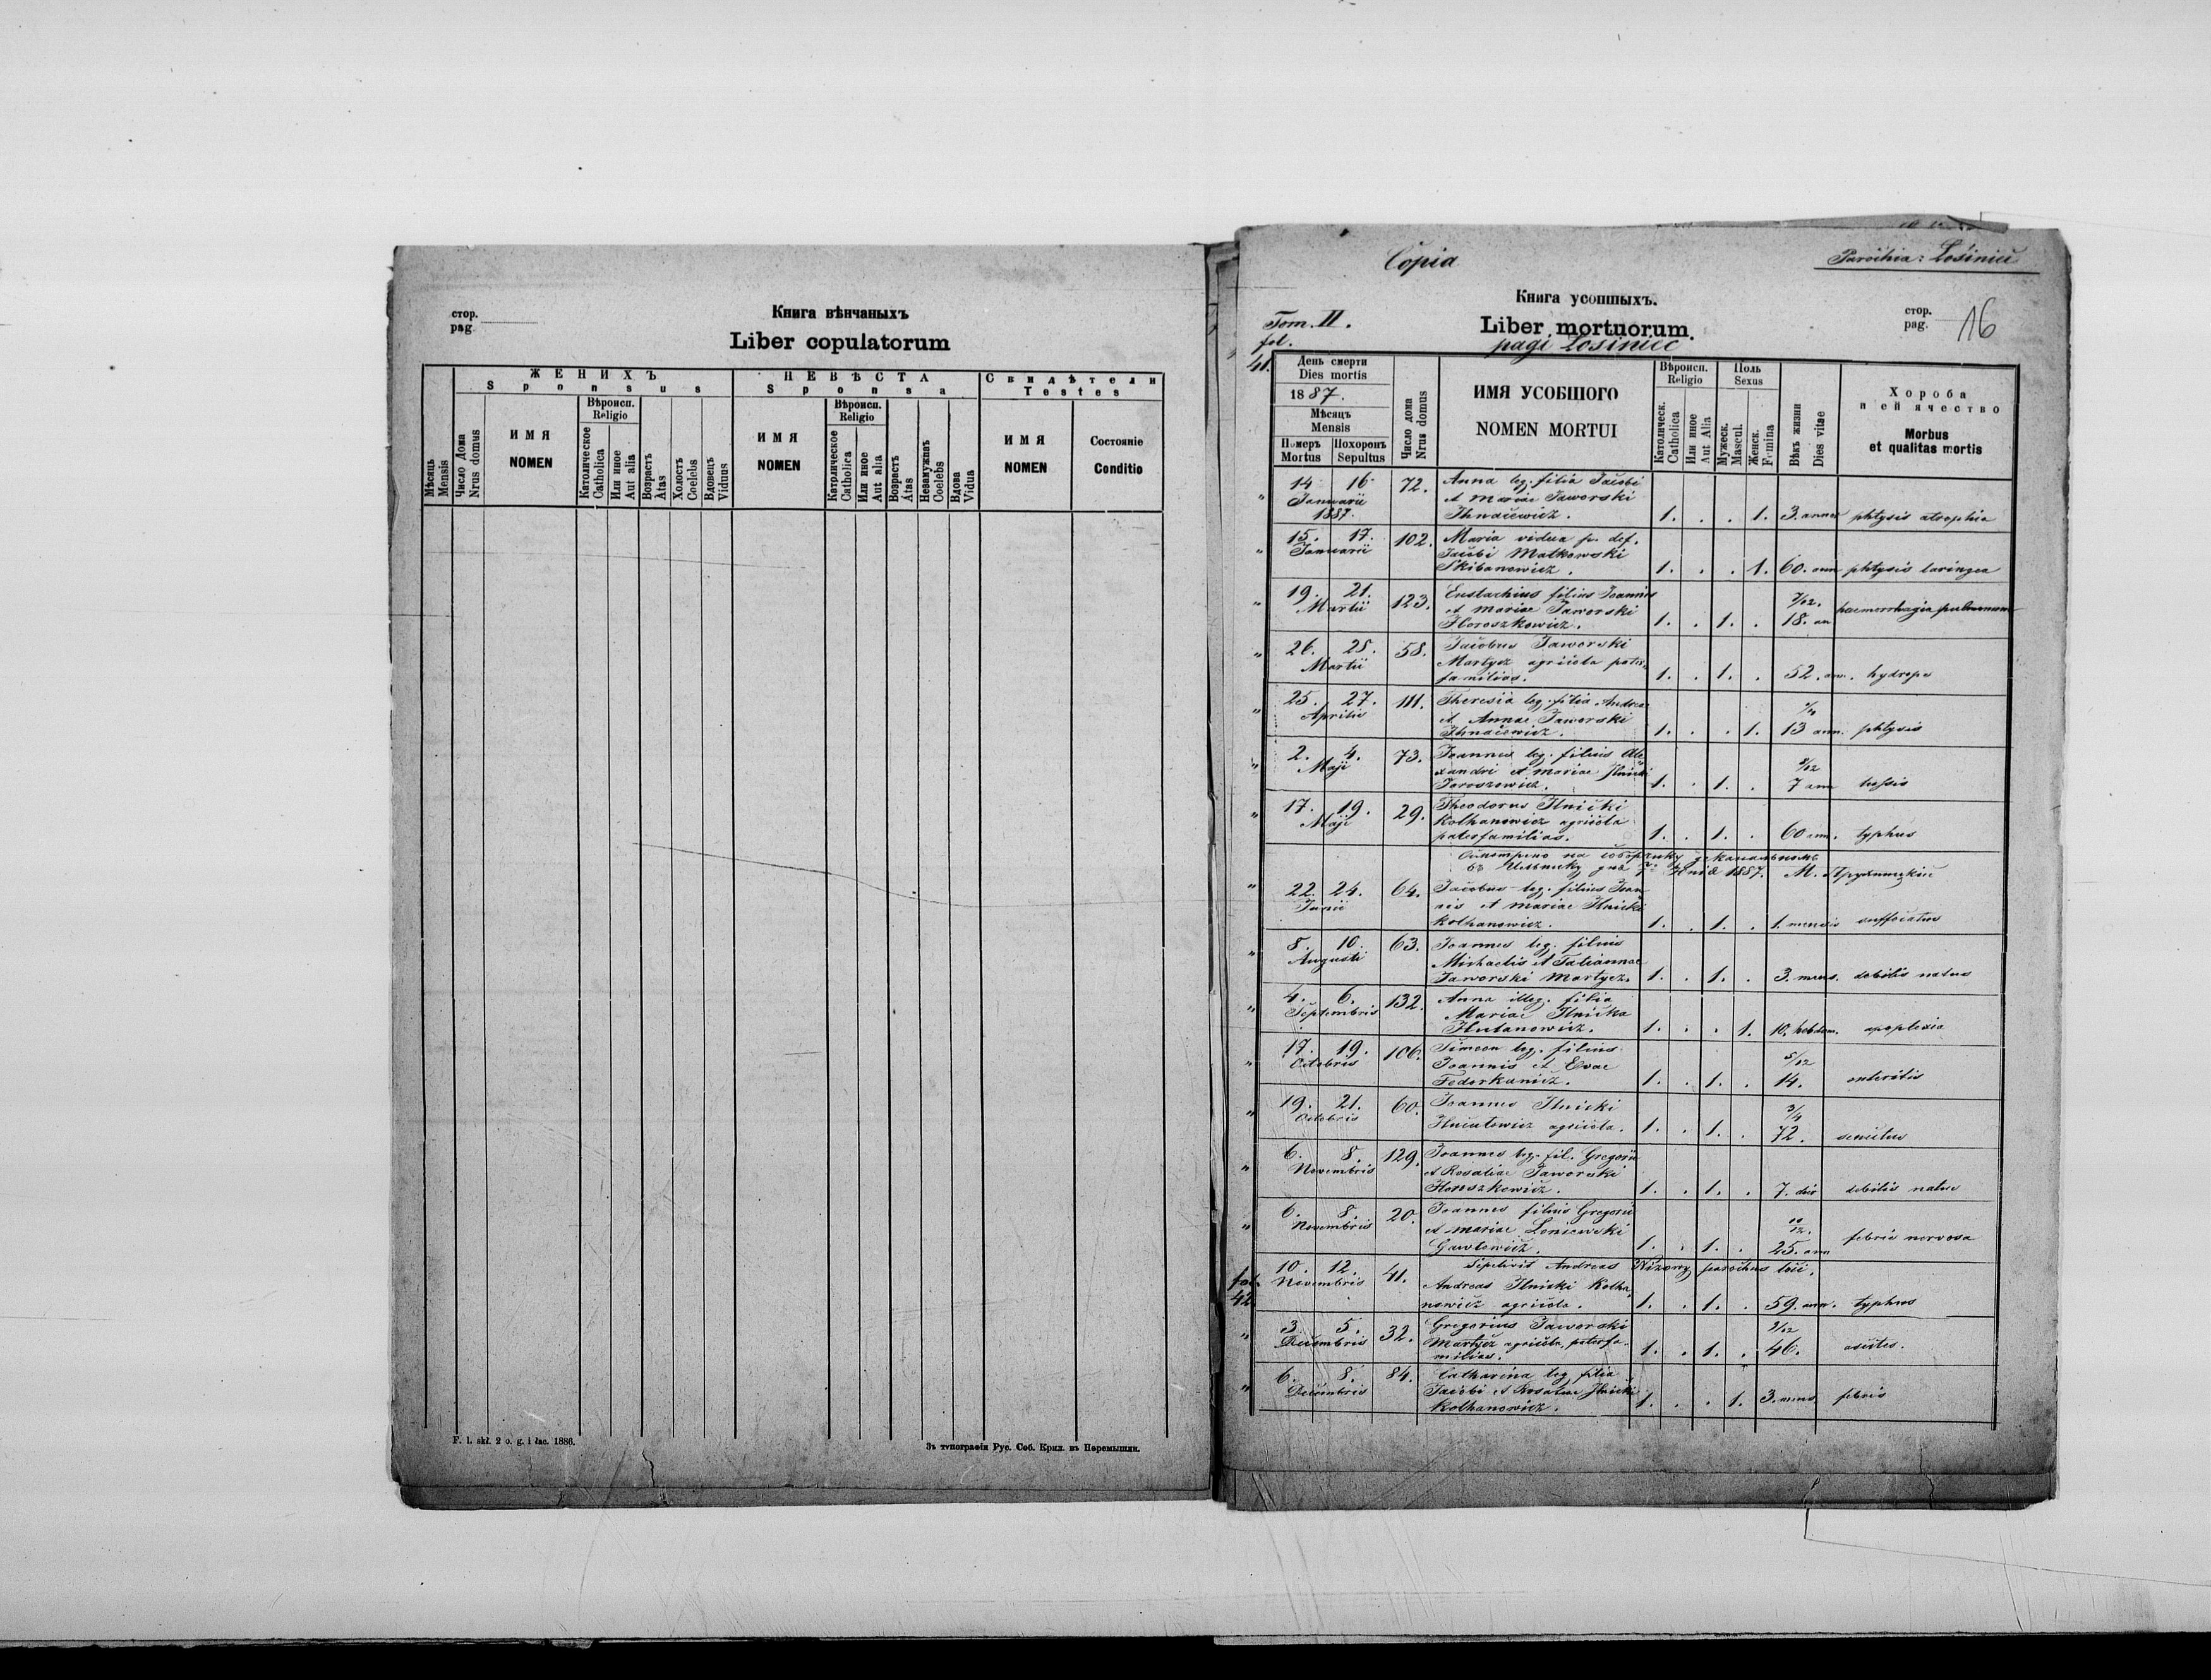 стор.
pag.
Книга вѣнчаныхъ
Liber copulatorum
Мѣсяць
Mensis
Ж Е Н И Х Ъ
S p o n s u s
Число Дома
Nrus domus
И М Я
NOMEN
Вѣроисп.
Religio
Католическое
Catholica
Или иное
Aut alia
Возрастъ
Atas
Холостъ
Coelebs
Вдовецъ
Viduus
Н Е В Ѣ С Т А
S p o n s a
И М Я
NOMEN
Вѣроисп.
Religio
Католическое
Catholica
Или иное
Aut alia
Возрастъ
Atas
Незамужна
Coelebs
Вдова
Vidua
С в и д ѣ т е л и
T e s t e s
И М Я
NOMEN
Состояніе
Conditio
F. 1. skł. 2 o. g. i łac. 1886.
Зъ типографіи Рус. Соб. Крил. въ Перемышли.
Copia
Parochia: Łosiniec
Книга усопшыхъ.
Tom. II.
Liber mortuorum.
стор.
pag.
16
fol.
pagi Łosiniec
41.
День смерти
Dies mortis
1887.
Мѣсяцъ
Mensis
Померъ
Mortus
Похоронъ
Sepultus
Число дома
Nrus domus
ИМЯ УСОБШОГО
NOMEN MORTUI
Вѣроисп.
Religio
Католическ.
Catholica
Или иное
Aut Alia
Полъ
Sexus
Мужеск.
Mascul.
Женск.
Femina
Вѣкъ жизни
Dies vitae
Х о р о б а
и е й я ч е с т в о
Morbus
et qualitas mortis
" 14 16 72. Anna leg. filia Jacobi
Januarii et Mariae Jaworski
1887. Ihnacewicz. 1. . . 1. 3. annor phtysis atrophia
" 15. 17. 102. Maria vidua p. def.
Januarii Jacobi Matkowski
Skibanowicz. 1. . . 1. 60. ann phtysis laringea
" 19. 21. 123. Eustachius filius Joannis 7/12.
Martii et Mariae Jaworski haemorrhagia pulmonum
Horoszkowicz. 1. . 1. . 18. an
" 26. 28. 58. Jacobus Jaworski
Martii Martycz agricola pater
familias. 1. . 1. . 52. ann. hydrops
" 25. 27. 111. Theresia leg. filia Andreae
Aprilis et Annae Jaworski
Ihnacewicz. 1. . . 1. 13 ann. phtysis
" 2. 4. 73. Joannes leg. filius Ale
Maji xandri et Mariae Ilnicki
Jaroszewicz. 1. . 1. . 7 ann tussis
" 17. 19. 29. Theodorus Ilnicki
Maji Kolhanowicz agricola
paterfamilias. 1. . 1. . 60 ann. typhus
1887. М.
" 22. 24. 64. Jacobus leg. filius Joan
Junii nis et Mariae Ilnicki
Kolhanowicz. 1. . 1. . 1. mensis suffocatus
" 8. 10. 63. Joannes leg. filius
Augusti Michaelis et Tatiannae
Jaworski Martycz. 1. . 1. . 3. mens. debilis natus
" 4. 6. 132. Anna illeg. filia
Septembris Mariae Ilnicka
Hutanowicz. 1. . . 1. 10. hebdom. apoplexia
" 17. 19. 106. Simeon leg. filius 5/12
Octobris Joannis et Evae
Fedorkanicz. 1. . 1. . 14. enteritis
" 19. 21. 60. Joannes Ilnicki 3/4
Octobris agricola. 1. . 1. . 72. senectus
" 6. 8. 129. Joannes leg. fil. Gregorii
Novembris et Rosaliae Jaworski
1. . 1. . 7. dies debilis natus
" 6. 8. 20. Joannes filius Gregorii
Novembris et Mariae Łoniewski 10/12.
Gawłowicz. 1. . 1. . 25. ann febris nervosa
fol. 10. 12. 41. Sepelivit Andreas Nizowy parochus loci.
42. Novembris Andreas Ilnicki Kolha
nowicz agricola. 1. . 1. . 59. ann. typhus
" 3. 5. 32. Gregorius Jaworski
Decembris Martycz agricola, paterfa-
milias. 1. . 1. . 46. ascites.
" 6. 8. 84. Catharina leg filia
Decembris Jacobi et Rosaliae Ilnicki
Kolhanowicz. 1. . . 1. 3. mens febris